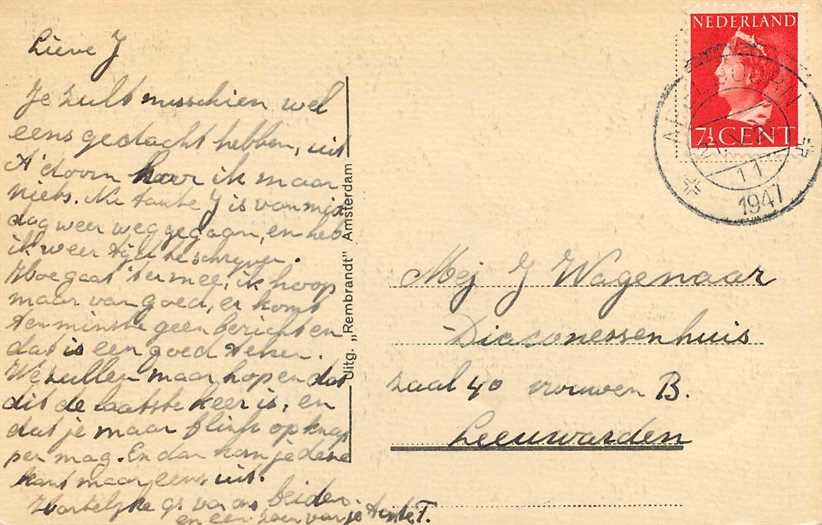 Lieve J
Je zult misschien wel
eens gedacht hebben, uit
A'doorn hoor ik maar
niets. Nu tante J is vanmid
dag weer weg gegaan, en heb
ik weer tijd te schrijven.
Hoe gaat 't er mee, ik hoop
maar van goed, er komt
tenminste geen bericht en
dat is een goed teken.
We zullen maar hopen dat
dit de laatste keer is, en
dat je maar flink opknap
per mag. En dan kom je deze
kant maar eens uit.
Hartelijke gr van ons beiden.
en een zoen van je tante T.
Uitg. „Rembrandt" Amsterdam
NEDERLAND
7½ CENT
APELDOORN
11
1947
Mej J Wagenaar
Diaconessenhuis
zaal 40 vrouwen B.
Leeuwarden